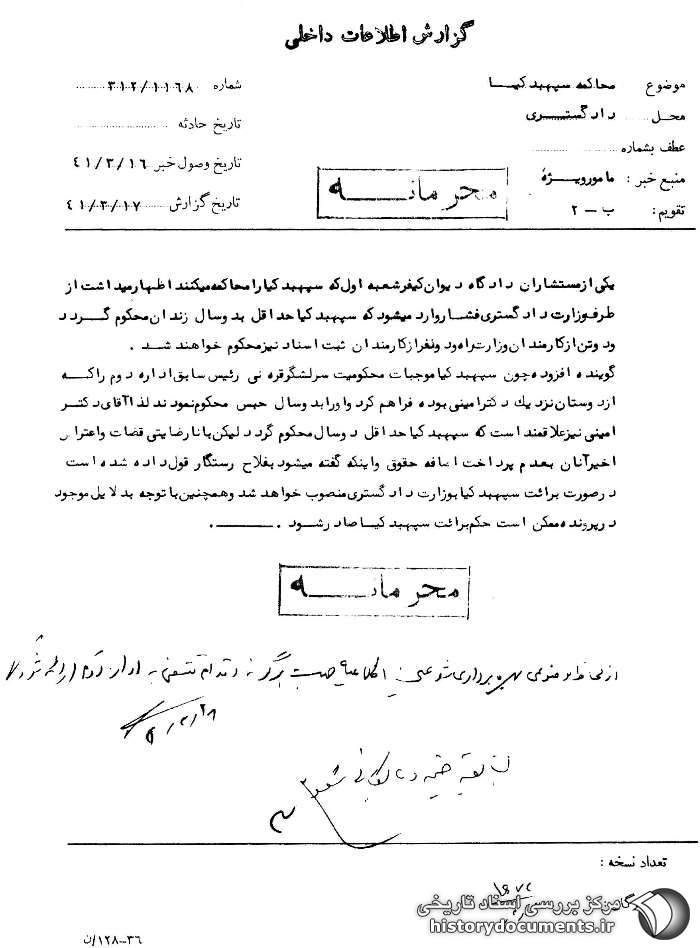 گزارش اطلاعات داخلی
موضوع محاکمه سپهبد کیا
شماره ۳۱۲/۱۱۶۸
محل دادگستری
تاریخ حادثه
عطف بشماره
تاریخ وصول خبر ۴۱/۳/۱۶
منبع خبر : مامور ویژه
تاریخ گزارش ۴۱/۳/۱۷
تقویم : ب – ۲
محرمانه
یکی از مستشاران دادگاه دیوان کیفر شعبه اول که سپهبد کیا را محاکمه میکنند اظهار میداشت از
طرف وزارت دادگستری فشار وارد میشود که سپهبد کیا حداقل بدو سال زندان محکوم گردد
ودو تن از کارمندان وزارت راه ودو نفر از کارمندان ثبت اسناد نیز محکوم خواهند شد .
گوینده افزوده چون سپهبد کیا موجبات محکومیت سرلشگر قره نی رئیس سابق اداره دوم را که
از دوستان نزدیك دکتر امینی بوده فراهم کرد و اورا بدو سال حبس محکوم نمودند لذا آقای دکتر
امینی نیز علاقمند است که سپهبد کیا حداقل دو سال محکوم گردد لیکن با نارضایتی قضات و اعتراض
اخیر آنان بعدم پرداخت اضافه حقوق و اینکه گفته میشود بفلاح رستگار قول داده شده است
در صورت برائت سپهبد کیا بوزارت دادگستری منصوب خواهد شد وهمچنین با توجه بدلایل موجود
در پرونده ممکن است حکم برائت سپهبد کیا صادر شود .
محرمانه
تعداد نسخه :
مرکز بررسی اسناد تاریخی
historydocuments.ir
۳۶–۱۲۸/ن